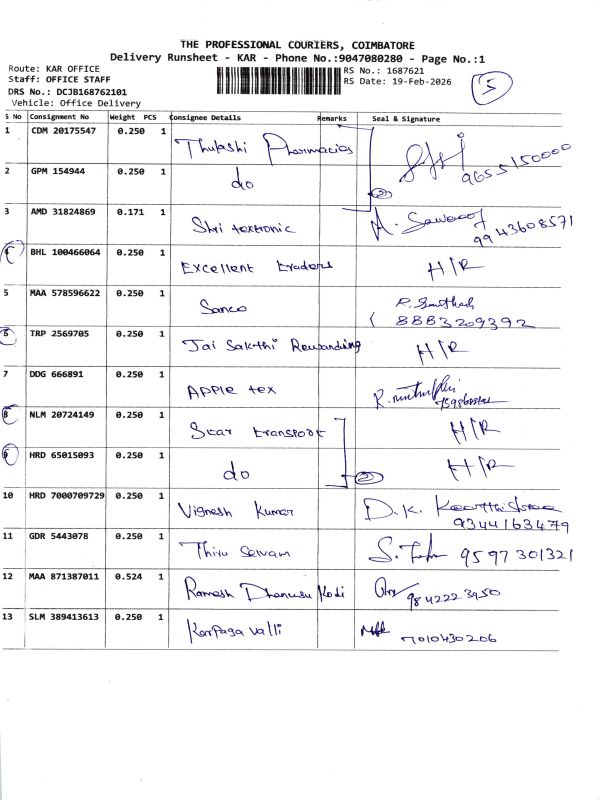 THE PROFESSIONAL COURIERS, COIMBATORE
Delivery Runsheet - KAR - Phone No.:9047080280 - Page No.:1
Route: KAR OFFICE
Staff: OFFICE STAFF
DRS No.: DCJB168762101
Vehicle: Office Delivery
RS No.: 1687621
RS Date: 19-Feb-2026
5
S No Consignment No Weight PCS Consignee Details Remarks Seal & Signature
1 CDM 20175547 0.250 1 Thulashi Pharmacies 9655150000
2 GPM 154944 0.250 1 do 2
3 AMD 31824869 0.171 1 Shri textronic 9943608571
4 BHL 100466064 0.250 1 Excellent traders H/R
5 MAA 578596622 0.250 1 Sanco 8883209392
6 TRP 2569705 0.250 1 Jai Sakthi Rewarding H/R
7 DDG 666891 0.250 1 Apple tex
8 NLM 20724149 0.250 1 Star transport H/R
9 HRD 65015093 0.250 1 do 2 H/R
10 HRD 7000709729 0.250 1 Vignesh Kumar D.K. 9344163479
11 GDR 5443078 0.250 1 Thiru Selvam 9597301321
12 MAA 871387011 0.524 1 Ramesh Dhanusu Kodi 9842223950
13 SLM 389413613 0.250 1 Karpaga valli 7010430206